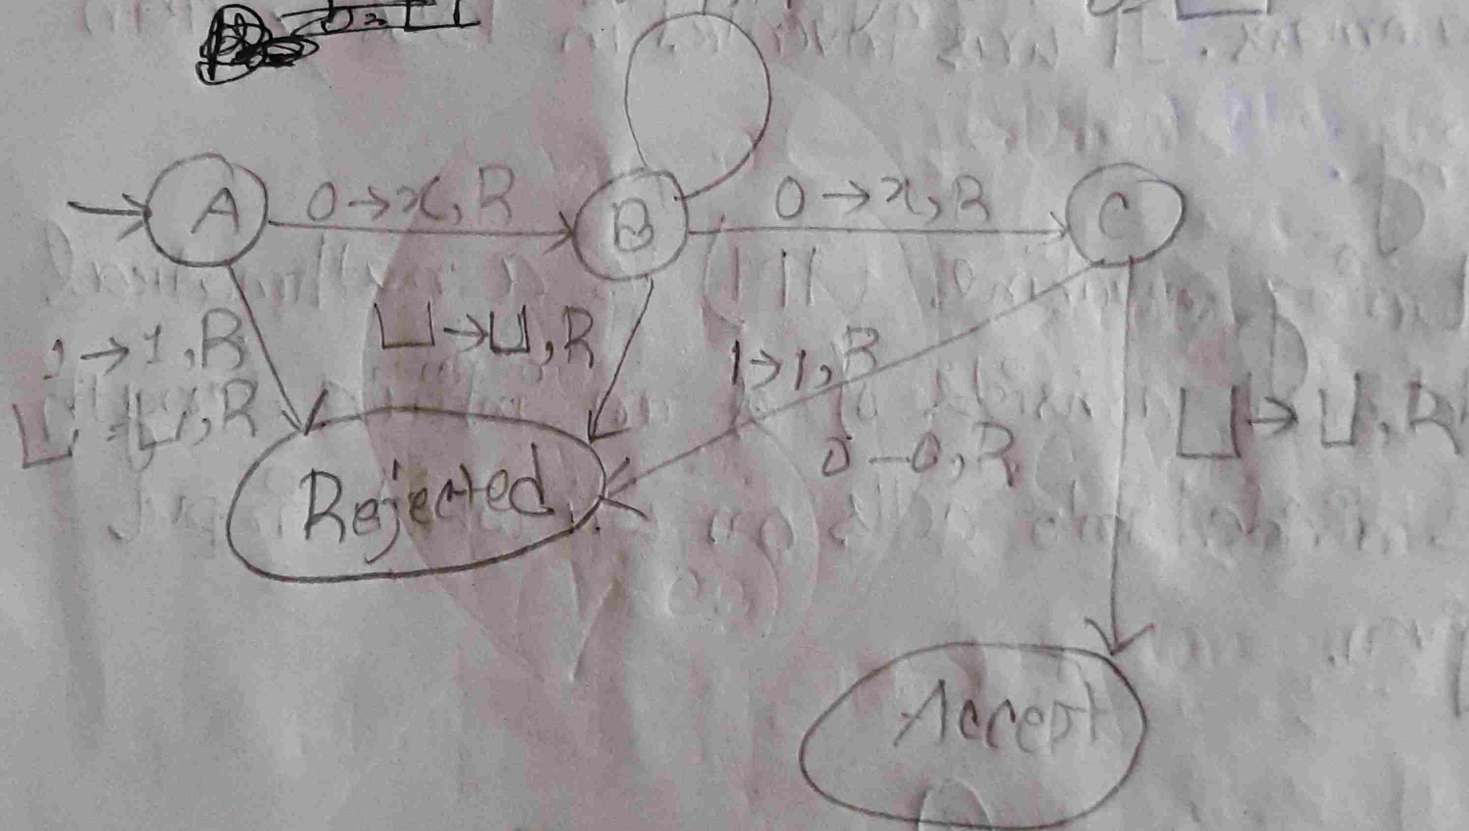 A
0→x,R
B
0→x,R
C
1→1,R
⊔→⊔,R
⊔→⊔,R
1→1,R
0–0,R
⊔→⊔,R
Rejected
Accept